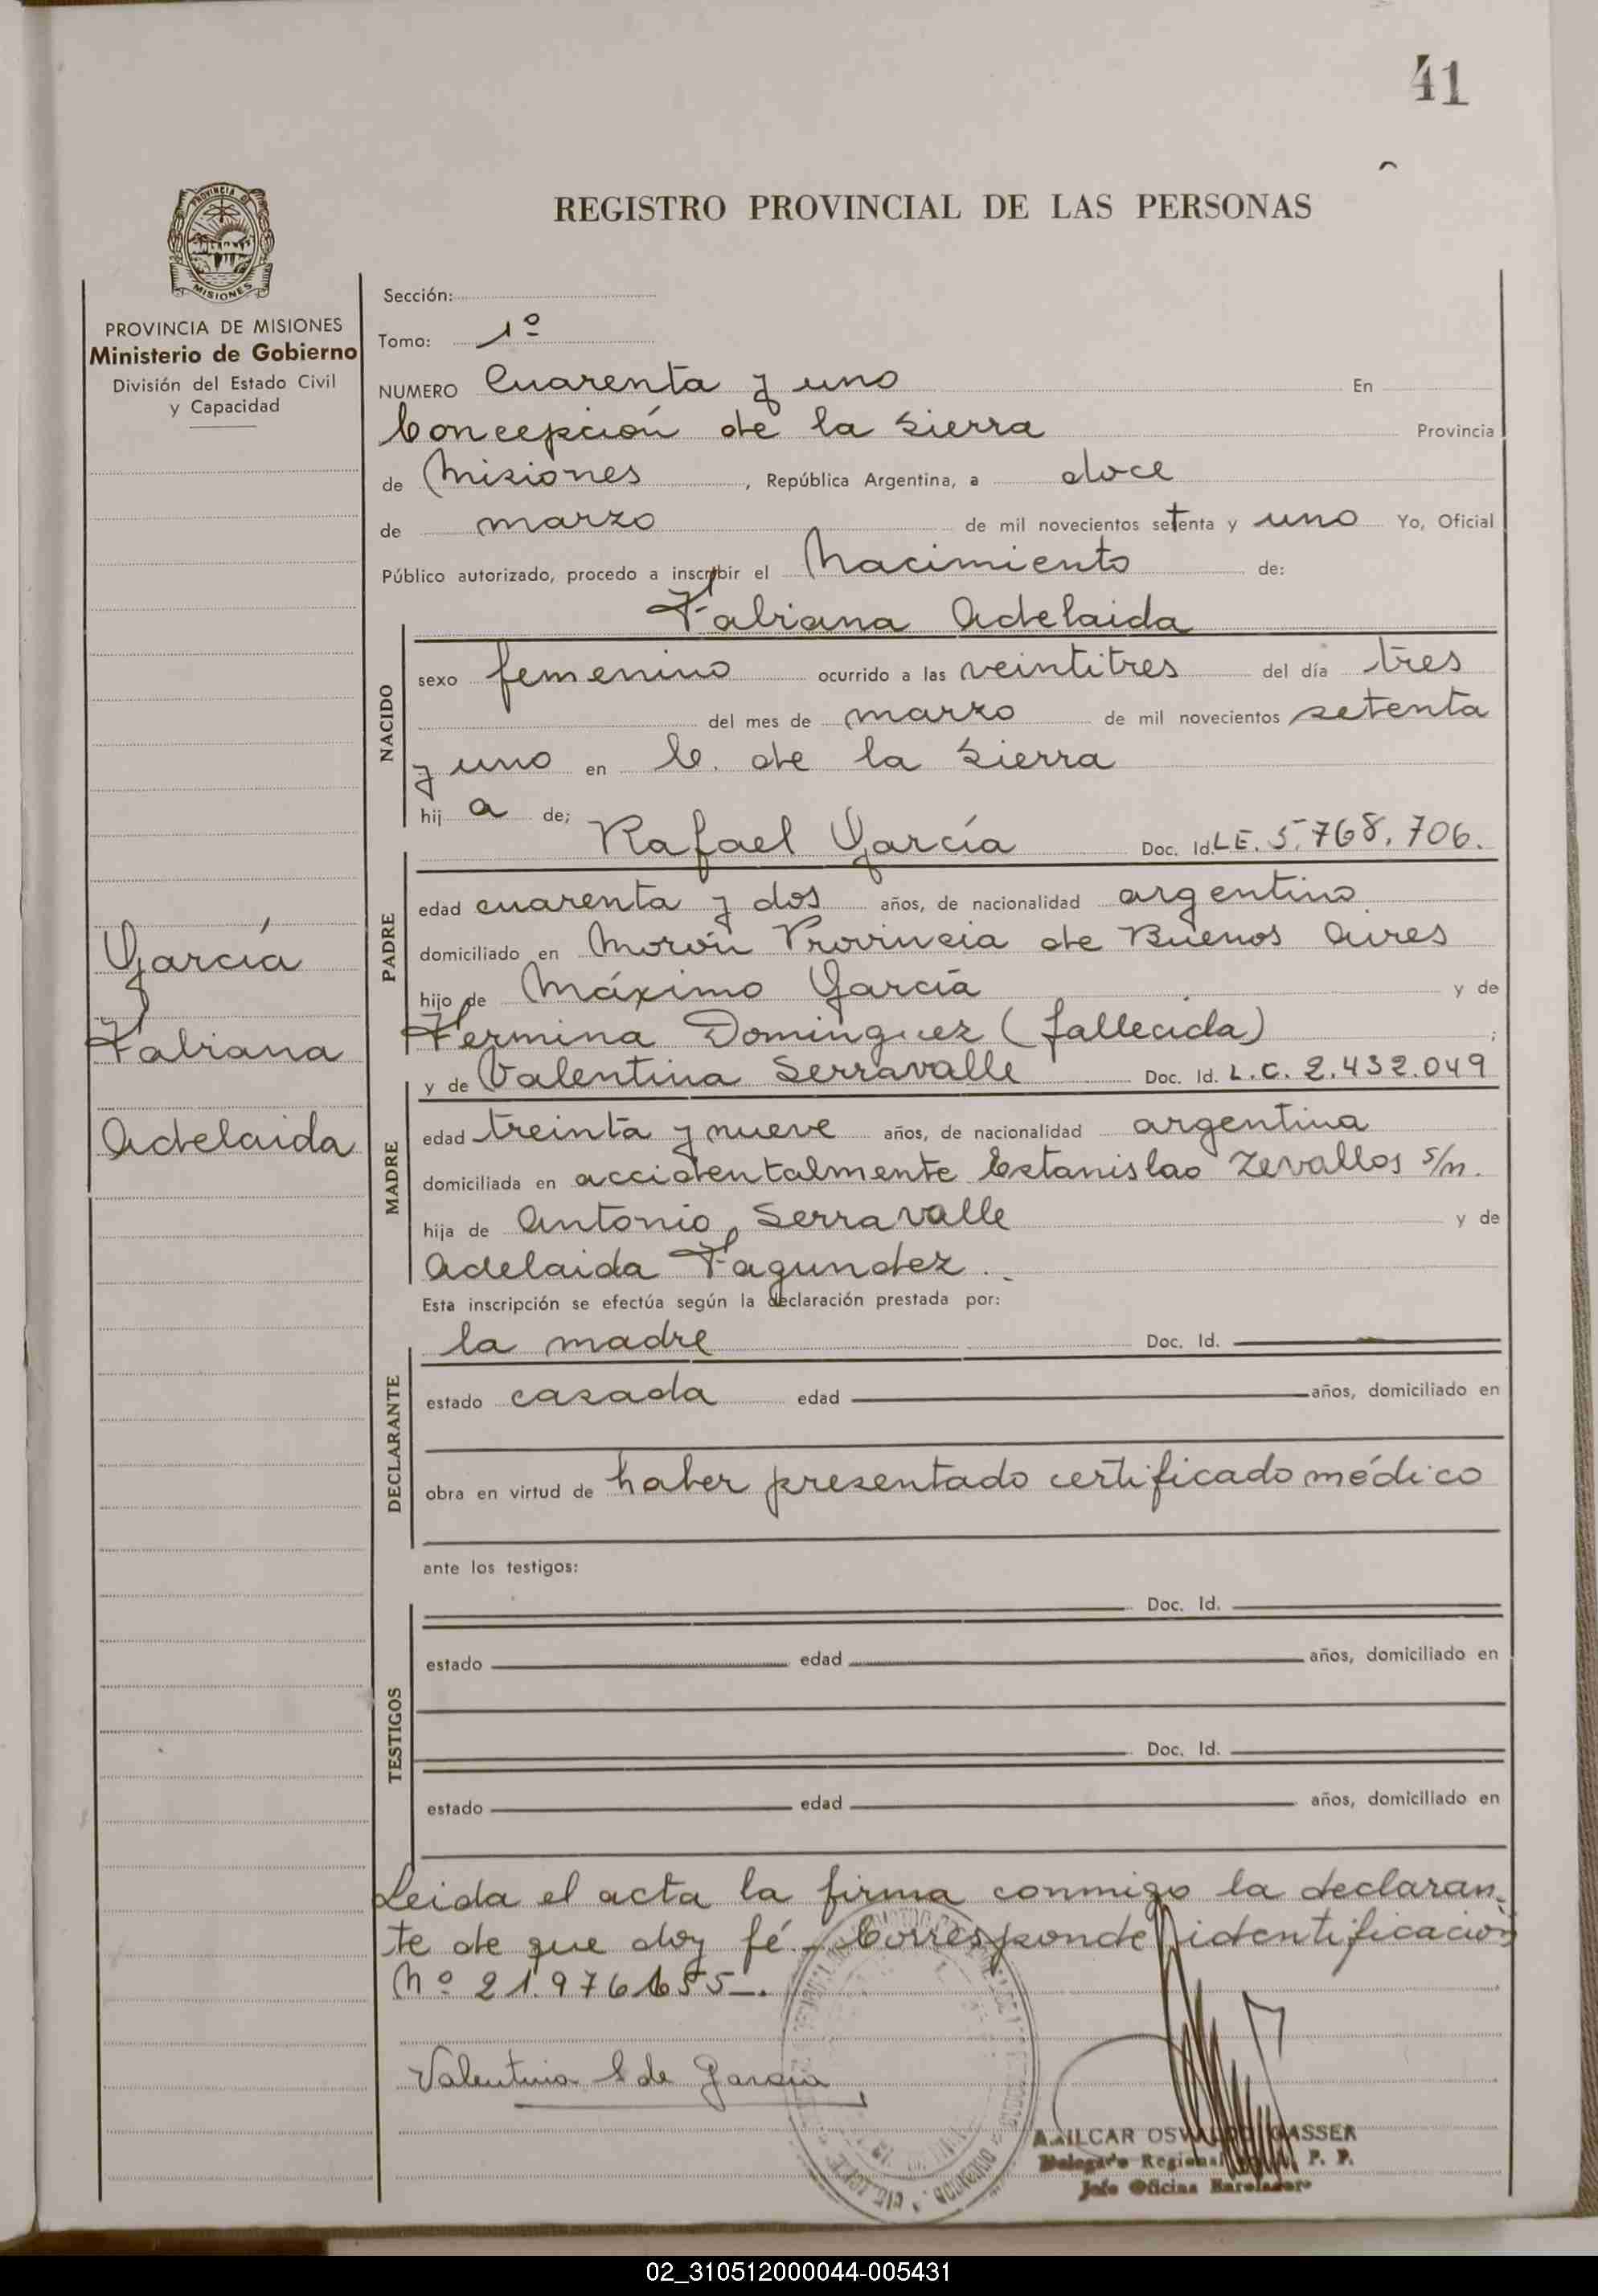 41
REGISTRO PROVINCIAL DE LAS PERSONAS
PROVINCIA DE MISIONES
Ministerio de Gobierno
División del Estado Civil
y Capacidad
García
Fabiana
Adelaida
Sección:
Tomo: 1º
NUMERO Cuarenta y uno En
Concepción de la Sierra Provincia
de Misiones, República Argentina, a doce
de marzo de mil novecientos setenta y uno Yo, Oficial
Público autorizado, procedo a inscribir el Nacimiento de:
Fabiana Adelaida
NACIDO
sexo femenino ocurrido a las veintitres del día tres
del mes de marzo de mil novecientos setenta
y uno en C. de la Sierra
hij a de;
Rafael García Doc. Id. L.E. 5.768.706.
PADRE
edad cuarenta y dos años, de nacionalidad argentino
domiciliado en Morón Provincia de Buenos Aires
hijo de Máximo García y de
Fermina Dominguez (fallecida) ;
y de Valentina Serravalle Doc. Id. L.C. 2.432.049
MADRE
edad treinta y nueve años, de nacionalidad argentina
domiciliada en accidentalmente Estanislao Zevallos s/n.
hija de Antonio Serravalle y de
Adelaida Fagundez.
Esta inscripción se efectúa según la declaración prestada por:
la madre Doc. Id.
DECLARANTE
estado casada edad años, domiciliado en
obra en virtud de haber presentado certificado médico
ante los testigos:
TESTIGOS
Doc. Id.
estado edad años, domiciliado en
Doc. Id.
estado edad años, domiciliado en
Leida el acta la firma conmigo la declaran-
te de que doy fé.- Corresponde identificación
Nº 21.976
Valentina S de García
OSWALDO GASSER
Delegado Regional P. P.
Jefe Oficina
02_310512000044-005431